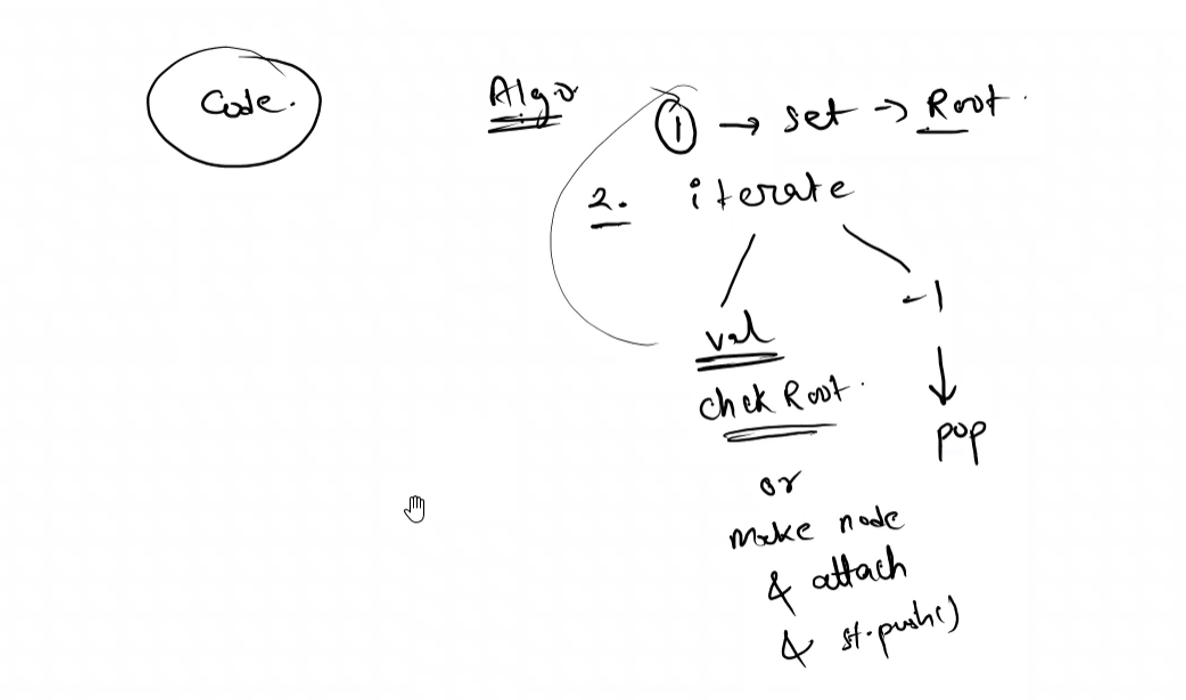 Code.
Algo
① → set → Root.
2. iterate
-1
val
chek Root.
pop
or
make node
& attach
& st.push()